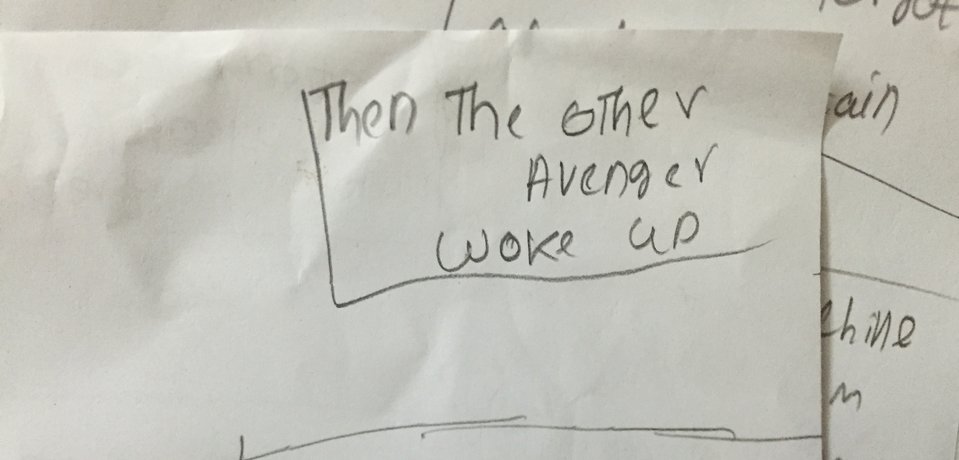 Then The other
Avenger
woke up
ain
chine
m